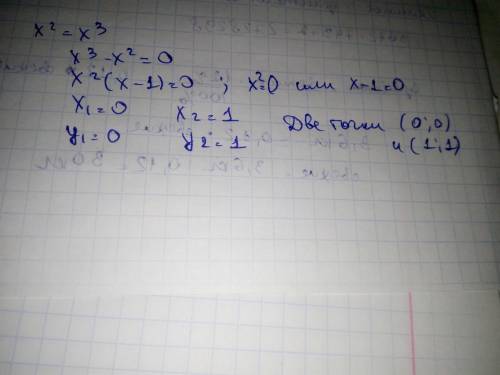 x² = x³
x³ - x² = 0
x²(x-1)=0 ; x²=0 или x-1=0
x₁=0 x₂=1 Две точки (0;0)
y₁=0 y₂=1 и (1;1)